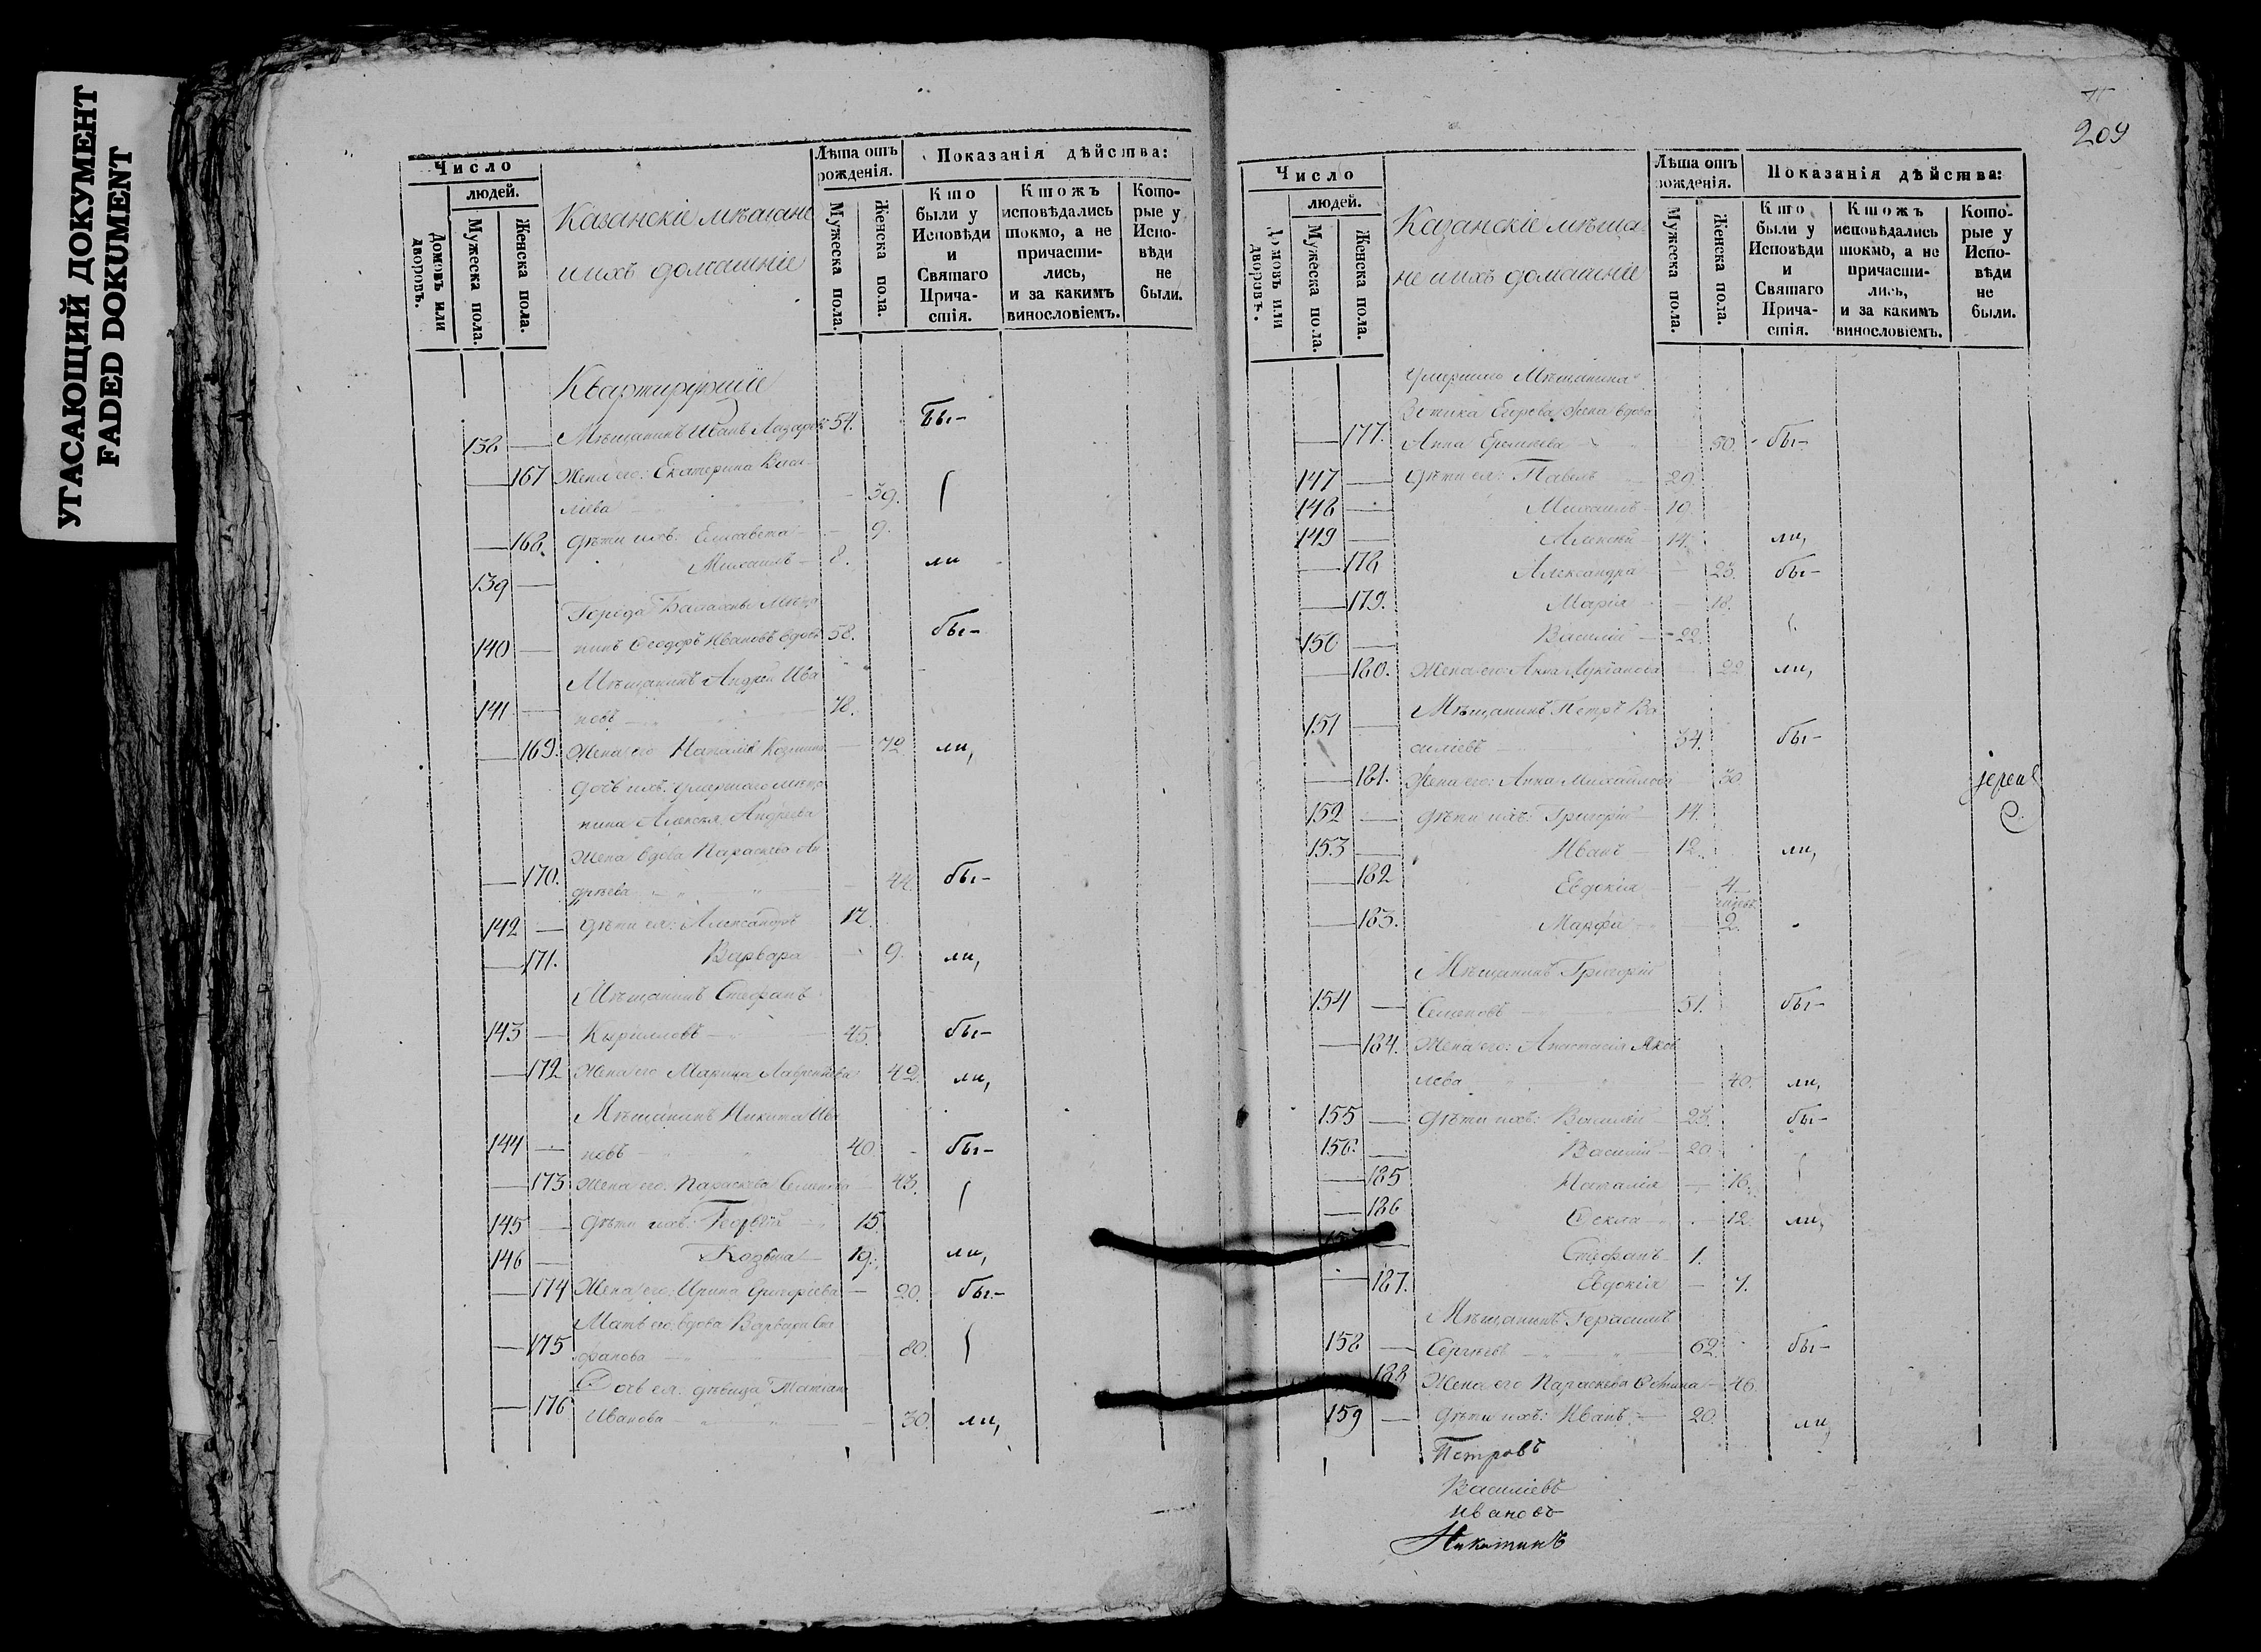 УГАСАЮЩИЙ ДОКУМЕНТ
FADED DOKUMENT
Число
людей.
Домовъ или дворовъ.
Мужеска пола.
Женска пола.
Казанскіе мѣщане
и ихъ домашніе
Лѣта отъ рожденія.
Мужеска пола.
Женска пола.
Показанія дѣйства:
Кто были у Исповѣди и Святаго Причастія.
Ктожъ исповѣдались токмо, а не причастились, и за какимъ винословіемъ.
Которые у Исповѣди не были.
Квартирующіе
138 — Мѣщанинъ Иванъ Лазаревъ 54. Бы-
— 167 Жена его: Екатерина Васи-
лiева 39.
— 168. Дѣти ихъ: Елисавета — 9.
139 — Михаилъ — 8. ли
Города Мѣща
140 — нинъ Ѳеодоръ Ивановъ вдовъ 58. бы-
Мѣщанинъ Андрей Ива
141 — новъ — 78.
— 169. Жена его Наталія Козмина — 72 ли,
Дочь ихъ: умершаго мѣща
нина Алексѣя Андреева
Жена вдова Параскева Ан
— 170. дрѣева — 44. бы-
142 — Дѣти ея: Александръ 12.
— 171. Варвара — 9. ли,
Мѣщанинъ Стефанъ
143 — Кириловъ — 45. бы-
— 172 Жена его Марина Лаврентіева 42. ли,
Мѣщанинъ Никита Ива
144 — новъ — 40. бы-
— 173 Жена его: Параскева Семенова 43.
145 — Дѣти ихъ: Георгій — 15.
146 — Козьма — 19. ли,
— 174 Жена его: Ирина Григоріева — 20. бы-
Мать его: вдова Варвара Сте
— 175 фанова — 80.
Дочь ея: дѣвица Татіана
— 176 Иванова — 30. ли,
209
Число
людей.
Домовъ или дворовъ.
Мужеска пола.
Женска пола.
Казанскіе мѣща-
не и ихъ домашніе
Лѣта отъ рожденія.
Мужеска пола.
Женска пола.
Показанія дѣйства:
Кто были у Исповѣди и Святаго Причастія.
Ктожъ исповѣдались токмо, а не причастились, и за какимъ винословіемъ.
Которые у Исповѣди не были.
Умершаго Мѣщанина
Егорова жена вдова
— 177. Анна 50. бы-
147 — Дѣти ея: Павелъ 20.
148 — Михаилъ — 10.
149 — Алексѣй — 14. ли,
— 178 Александра — 23. бы-
— 179. Марія — 18.
150 — Василій — 22.
— 180. Жена его: Анна Лукіанова 22 ли,
Мѣщанинъ Петръ Ва
151 — силіевъ 34. бы-
— 181. Жена его: Анна Михайлова 30
152 — Дѣти ихъ: Григорій — 14.
153 — Иванъ — 12. ли,
— 182 Евдокія — 4.
— 183. Марфа — 2.
Мѣщанинъ Григорій
154 — Семеновъ — 51. бы-
— 184. Жена его: Анастасія Яков
лева — 40. ли,
155 — Дѣти ихъ: Василій — 23. бы-
156 — Василій — 20.
— 185 Наталія — 16.
— 186 Ѳекла — 12. ли,
— Стефанъ — 1.
— 187. Евдокія — 7.
Мѣщанинъ Герасимъ
158 — Сергѣевъ — 62. бы-
188 Жена его Параскева — 46.
159 — Дѣти ихъ: Иванъ — 20. ли,
іерей
С.
Петровъ
Василіевъ
Ивановъ
Никитинъ